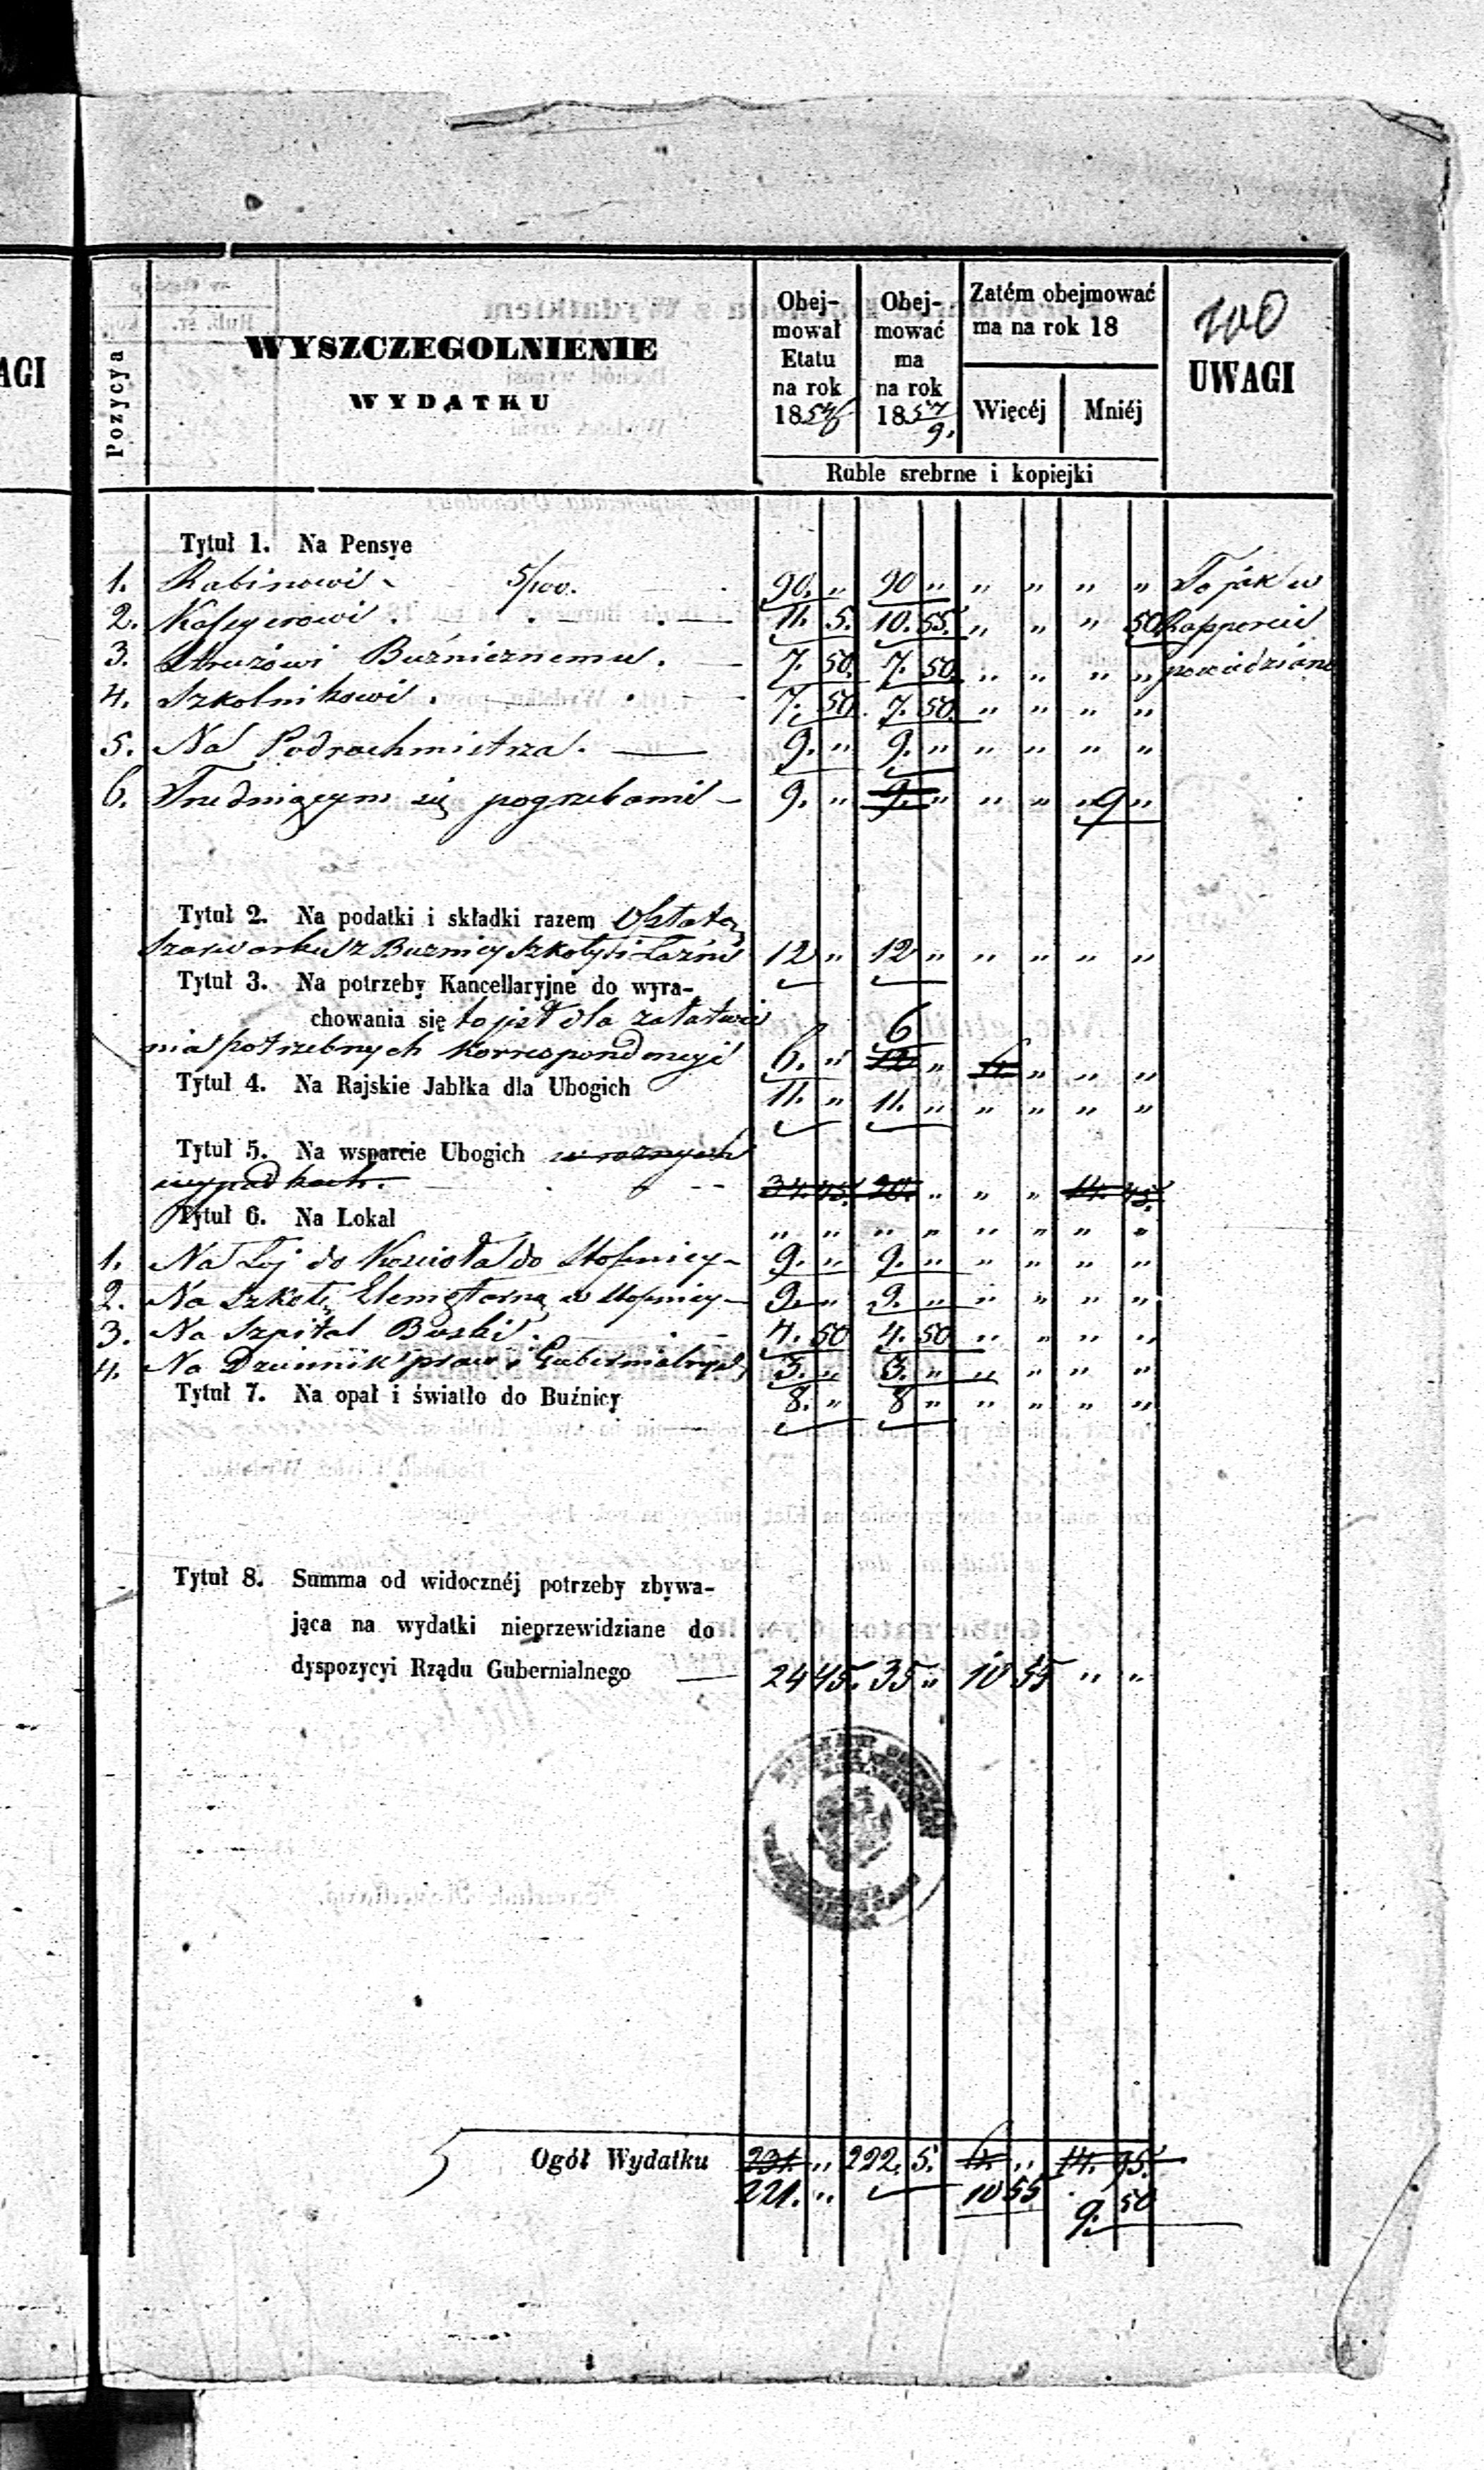 AGI
100
Pozycya
WYSZCZEGOLNIENIE
WYDATKU
Obej-
mował
Etatu
na rok
18
Obej-
mować
ma
na rok
18 57/9.
Zatém obejmować
ma na rok 18
Więcéj Mniéj
UWAGI
Ruble srebrne i kopiejki
Tytuł 1. Na Pensye
1. Rabinowi - 5/100. 90. " 90 " " " " " To jak w
2. Kassyerowi . 11. 5. 10. 55. " " " 50 Rapporcie
3. Stróżowi Buźnicznemu. 7. 50. 7. 50. " " " " powiedziano
4. Szkolnikowi . 7. 50. 7. 50. " " " "
5. Na Podrachmistrza. 9. " 9. " " " " "
6. Trudniącym się pogrzebami - 9. " 9. " " " " 9 "
Tytuł 2. Na podatki i składki razem Opłata
szarwarku z Buznicy Szkoły i Łaźni 12 " 12 " " " " "
Tytuł 3. Na potrzeby Kancellaryjne do wyra-
chowania się to jest dla załatwie 6
nia potrzebnych korrespondencyi 6. " 12 " 6. " " "
Tytuł 4. Na Rajskie Jabłka dla Ubogich 11. " 11. " " " " "
Tytuł 5. Na wsparcie Ubogich w roznych
wypadkach. 34. 45. 20. " " " 14. 45.
Tytuł 6. Na Lokal " " " " " " " "
1. Na Łoj do Kościoła do Stopnicy - 9. " 9. " " " " "
2. Na Szkołę Elemętarną w Stopnicy - 9. " 9. " " " " "
3. Na Szpital Buski. 4. 50 4. 50 " " " "
4. Na Dziennik praw i Gubernialny 3. " 3. " " " " "
Tytuł 7. Na opał i światło do Buźnicy 8. " 8 " " " " "
Tytuł 8. Summa od widocznéj potrzeby zbywa-
jąca na wydatki nieprzewidziane do
dyspozycyi Rządu Gubernialnego 24 45. 35 " 10 55 " "
Ogół Wydatku 231. " 222. 5. 6. " 14. 95.
221. " 10 55 9. 50